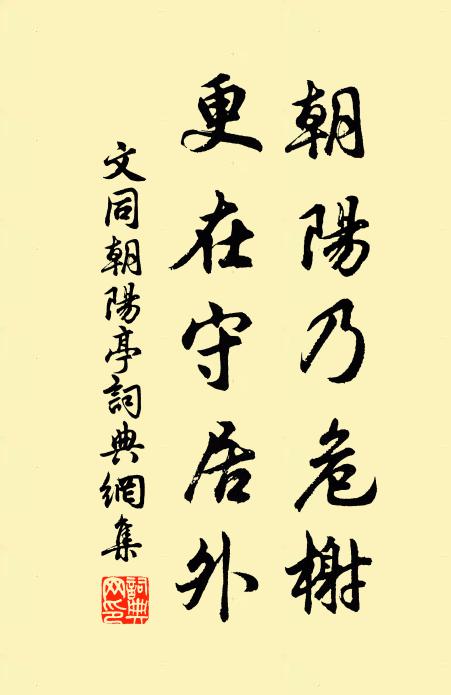 朝陽乃危榭
更在守居外
文同朝陽亭詞典網集
詞典网印